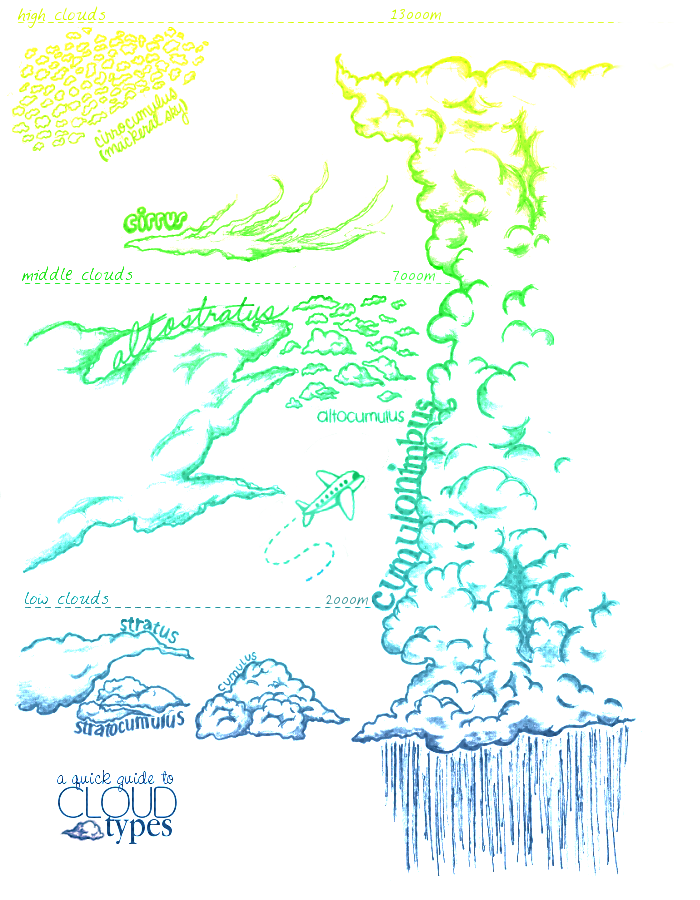 high clouds 13000m
cirrocumulus
(mackeral sky)
cirrus
middle clouds 7000m
altostratus
altocumulus
cumulonimbus
low clouds 2000m
stratus
cumulus
stratocumulus
a quick guide to
CLOUD
types